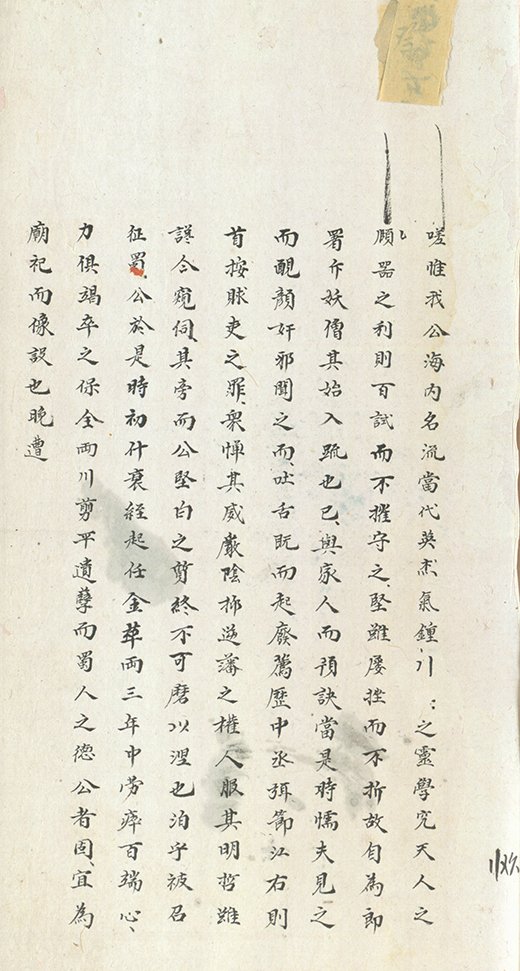 嗟惟我公海内名流當代英杰氣鍾川之靈學究天人之
頋器之利則百試而不摧守之堅雖屡挫而不折故自為郎
署斥妖僧其始入疏也已與家人而預訣當是時懦夫見之
而靦顔奸邪聞之而吐舌既而起廢薦歷中丞弭節江右則
首按賕吏之罪衆憚其威嚴陰抑逆藩之權人服其明哲雖
今窺伺其旁而公堅白之終不可磨以涅也洎乎被召
征蜀公於是時初什衰絰起任金革兩三年中劳瘁百端心
力俱竭卒之保全兩川剪平遺孽而蜀人之德公者固宜為
廟祀而像設也晚遭